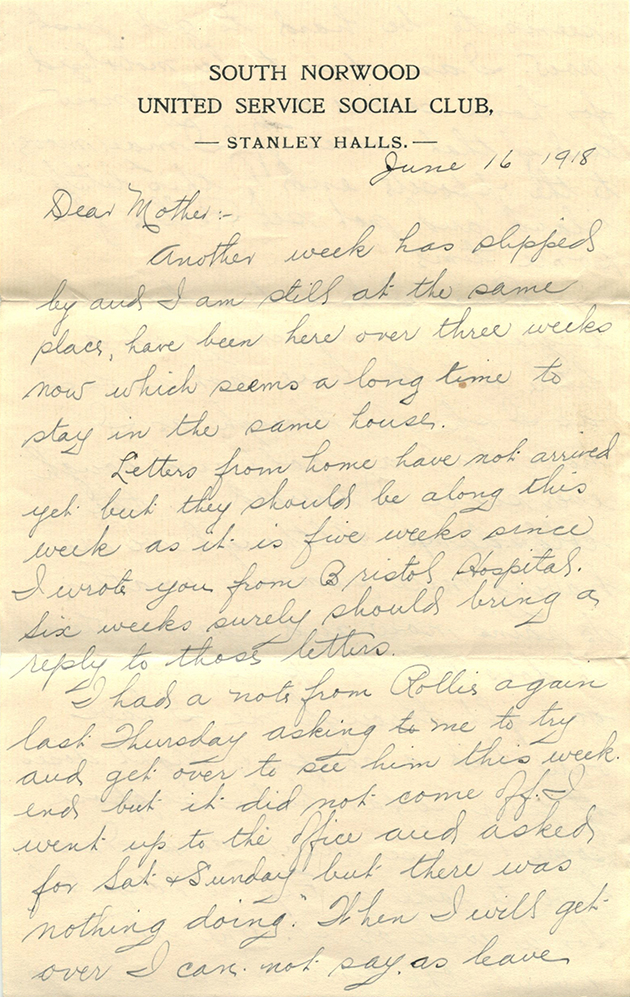 SOUTH NORWOOD
UNITED SERVICE SOCIAL CLUB,
— STANLEY HALLS. —
June 16 1918
Dear Mother:-
Another week has slipped
by and I am still at the same
place, have been here over three weeks
now which seems a long time to
stay in the same house.
Letters from home have not arrived
yet but they should be along this
week as it is five weeks since
I wrote you from Bristol Hospital.
Six weeks surely should bring a
reply to those letters.
I had a note from Rollie again
last Thursday asking to me to try
and get over to see him this week.
end but it did not come off. I
went up to the office and asked
for Sat & Sunday but there was
"nothing doing." When I will get
over I can not say as leave